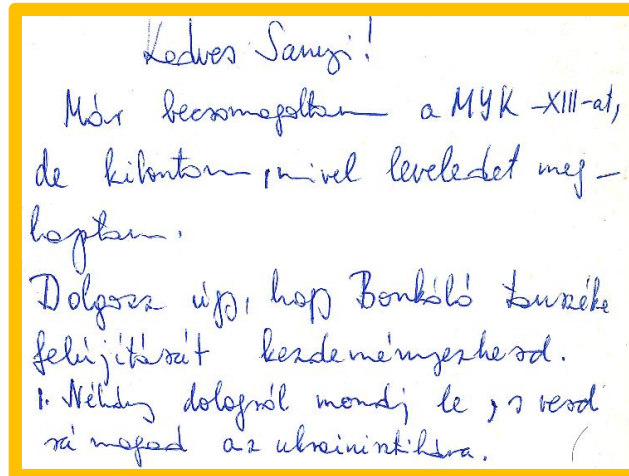 Kedves Sanyi!
Már becsomagoltam a MYK-XIII-at,
de kibontom, mivel leveledet meg-
kaptam.
Dolgozz úgy, hogy Bonkáló tanszéke
felújítását kezdeményezhesd.
1. Néhány dologról mondj le, s vesd
rá magad az ukrainisztikára.